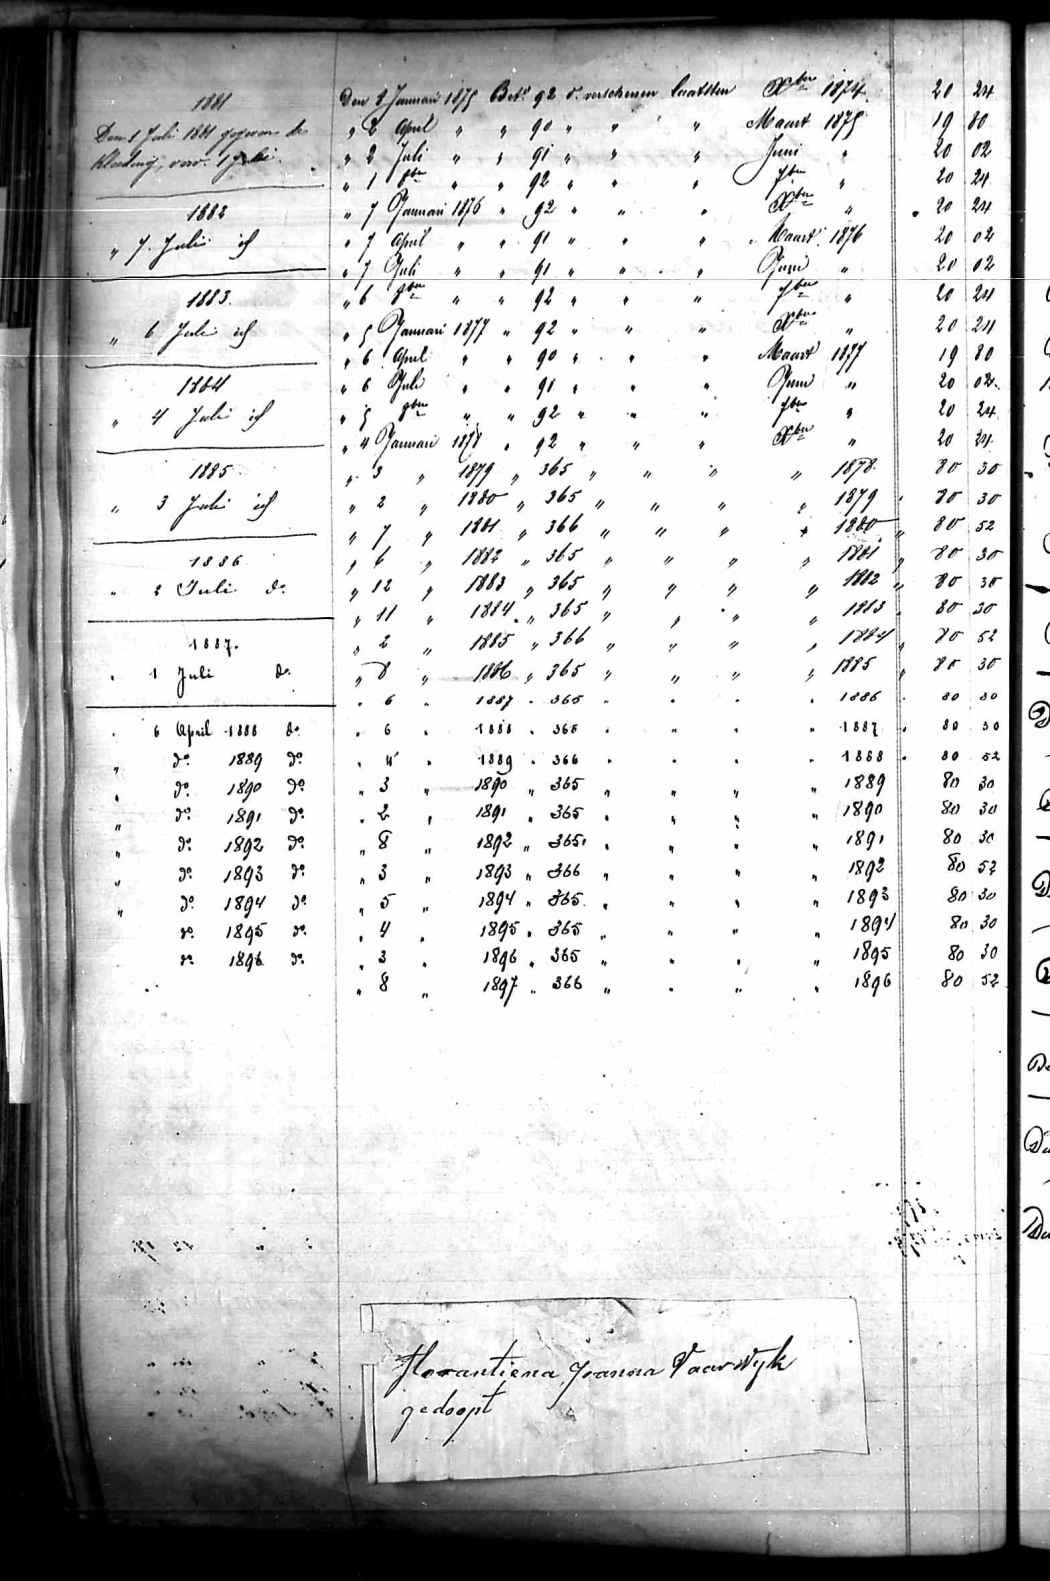 1881
Den 1 Juli 1881 gegeven de
kleeding, verv. 1 Juli.
1882
" 7. Juli id
1883.
" 6 Juli id
1884
" 4 Juli id
1885
" 3 Juli id
1886
" 2 Juli do.
1887.
" 1 Juli do.
" 6 April 1888 do
" do 1889 do
" do 1890 do
" do 1891 do
" do 1892 do
" do 1893 do
" do 1894 do
do 1895 do
do 1896 do
Den 2 Januari 1875 Bet. 92 d. verschenen laatsten Xber 1874. 20 24
" 2 April " " 90 " " " Maart 1875 19 80
" 2 Juli " " 91 " " " Juni " 20 02
" 1 8ber " " 92 " " " 7ber " 20 24
" 7 Januari 1876 " 92 " " " Xber " 20 24
" 7 April " " 91 " " " Maart 1876 20 02
" 7 Juli " " 91 " " " Juni " 20 02
" 6 8ber " " 92 " " " 7ber " 20 24
" 5 Januari 1877 " 92 " " " Xber " 20 24
" 6 April " " 90 " " " Maart 1877 19 80
" 6 Juli " " 91 " " " Juni " 20 02
" 5 8ber " " 92 " " " 7ber " 20 24
" 4 Januari 1878 " 92 " " " Xber " 20 24
" 3 " 1879 " 365 " " " " 1878 80 30
" 2 " 1880 " 365 " " " " 1879 80 30
" 7 " 1881 " 366 " " " " 1880 " 80 52
" 6 " 1882 " 365 " " " " 1881 " 80 30
" 12 " 1883 " 365 " " " " 1882 " 80 30
" 11 " 1884 " 365 " " " " 1883 " 80 30
" 2 " 1885 " 366 " " " " 1884 " 80 52
" 8 " 1886 " 365 " " " " 1885 " 80 30
" 6 " 1887 " 365 " " " " 1886 80 30
" 6 " 1888 " 365 " " " " 1887 " 80 30
" 4 " 1889 " 366 " " " " 1888 " 80 52
" 3 " 1890 " 365 " " " " 1889 80 30
" 2 " 1891 " 365 " " " " 1890 80 30
" 8 " 1892 " 365 " " " " 1891 80 30
" 3 " 1893 " 366 " " " " 1892 80 52
" 5 " 1894 " 365 " " " " 1893 80 30
" 4 " 1895 " 365 " " " " 1894 80 30
" 3 " 1896 " 365 " " " " 1895 80 30
" 8 " 1897 " 366 " " " " 1896 80 52
Florantiena Joanna Vaarwijk
gedoopt